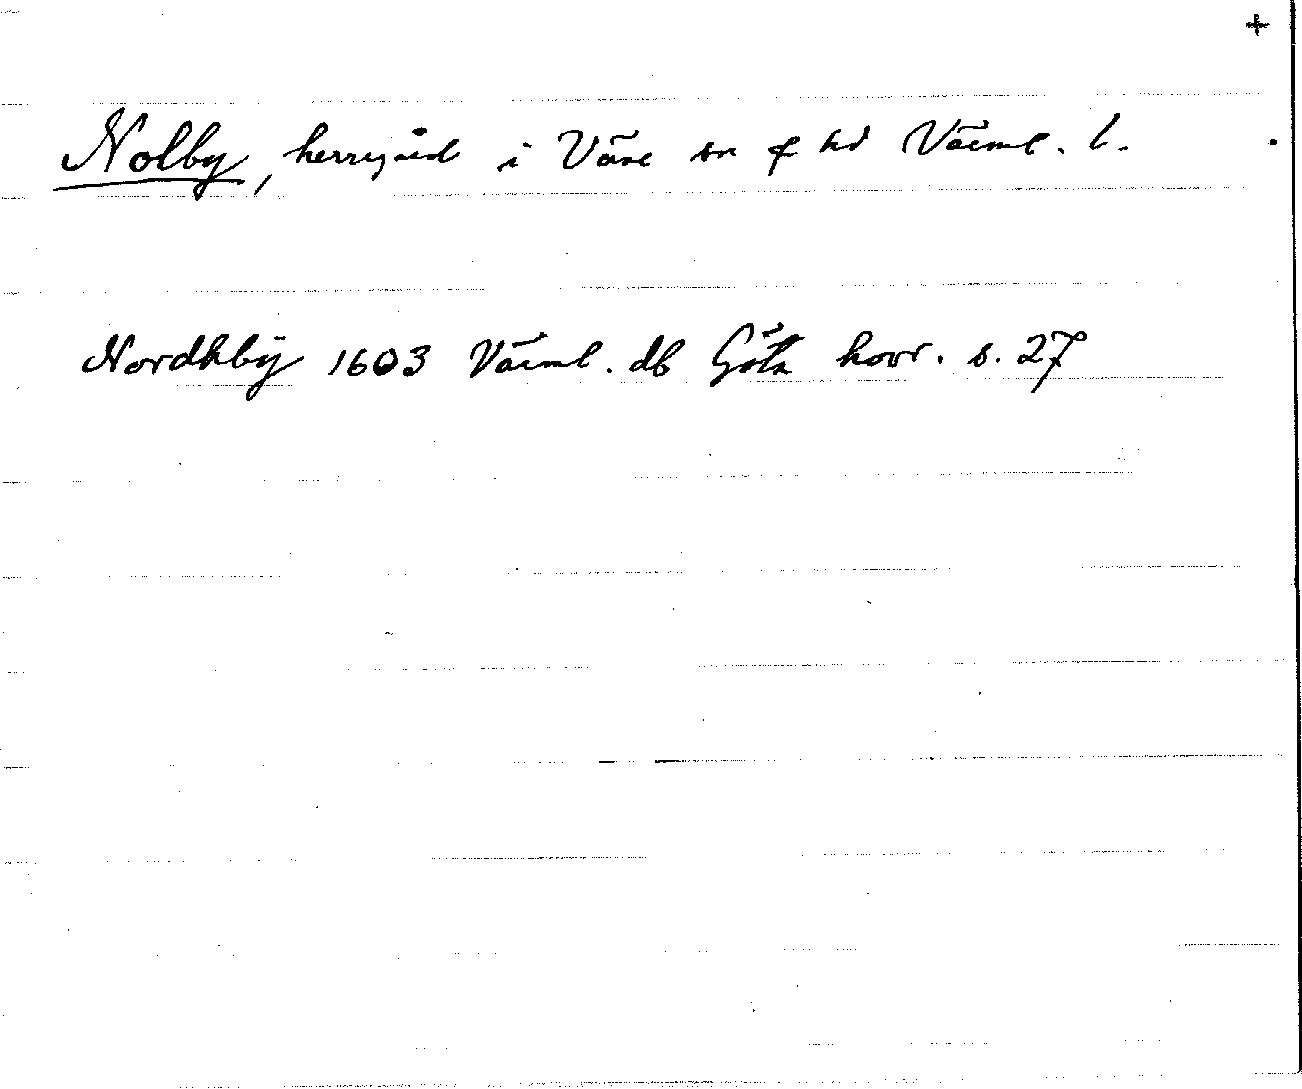 +
Nolby, herrgård i Väse sn o hd Värml. l.
Nordhbÿ 1603 Värml. db Göta hovr. s. 27